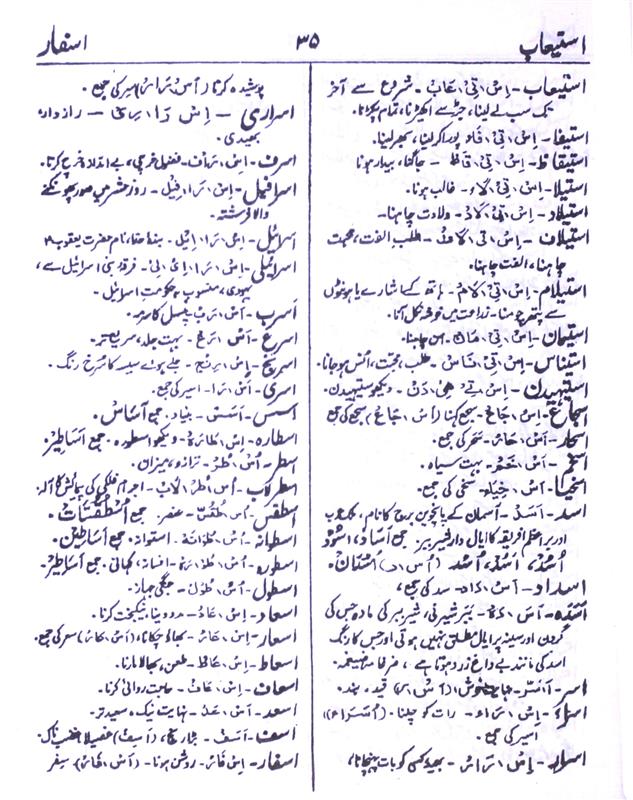 استیعاب ۳۵ اسفار
استیعاب - اِسْ ، تِیْ ، عَابْ - شروع سے آخر
تک سب لے لینا، جڑ سے اکھیڑنا، تمام پکڑنا.
استیفا - اِسْ ، تِیْ ، فَاءِ پورا کر لینا، بھر لینا.
استیقاظ - اِسْ ، تِیْ ، قَاظْ - جاگنا، بیدار ہونا
استیلا - اِسْ ، تِیْ ، لَاءِ - غالب ہونا.
استیلاد - اِسْ ، تِیْ ، لَادْ - ولادت چاہنا-
استیلاف - اِسْ ، تِیْ ، لَافْ - طلب الفت، محبت
چاہنا، الفت چاہنا.
استیلام - اِسْ ، تِیْ ، لَامْ - ہاتھ کے اشارے یا ہونٹوں
سے پتھر چومنا - زراعت میں خوشہ نکل آنا.
استیمان - اِسْ ، تِیْ ، مَانْ - امن چاہنا.
استیناس - اِسْ ، تِیْ ، نَاسْ - طلب، محبت، اُنس ہو جانا.
استیہیدن - اِسْ ، تِے ، ھِیْ ، دَنْ - دیکھو ستیہیدن.
اسجاع - اِسْ ، جَاعْ - سجع کہنا (اَسْ ، جَاعْ) سجع کی جمع
اسحار - اَسْ ، حَارْ - سحر کی جمع.
اسحم - اَسْ ، حَمْ - بہت سیاہ.
اسخیا - اَسْ ، خِیَاءِ - سخی کی جمع.
اسد - اَسَدْ - آسمان کے پانچویں برج کا نام،
اور بر اعظم افریقہ کا ایال دار شیر ببر. جمع آسَادْ، اُسُوْدْ
اُسُدْ،
اسداد - اَسْ ، دَادْ - سد کی جمع،
اسدہ - اَسَ ، دَہْ - ببر شیرنی، شیر ببر کی مادہ جس کی
گردن اور سینہ پر ایال مطلق نہیں ہوتی اور جس کا رنگ
اسد کی مانند بے داغ زرد ہوتا ہے ،
اسر - (اَسْ ، رْ) قید - بند.
اسراء - اِسْ ، رَاء - رات کو چلنا - (اُسَرَاء)
اسیر کی جمع.
اسرار - اِسْ ، رَارْ - بھید کسی کو بات پہنچانا،
پوشیدہ کرنا (اَسْ ، رَارْ) سر کی جمع.
اسراری - اِسْ ، رَا ، رِیْ - رازدار،
بھیدی.
اسراف - اِسْ ، رَافْ - فضول خرچی، بے اندازہ خرچ کرنا.
اسرافیل - اِسْ ، رَا ، فِیْل - روز حشر میں صور پھونکنے
والا فرشتہ.
اسرائیل - اِسْ ، رَا ، اِیْل - بندۂ خدا، نام حضرت یعقوبؑ
اسرائیلی - اِسْ ، رَا ، اِیْ ، لِیْ - فرقہ بنی اسرائیل سے،
یہودی، منسوب بہ حکومتِ اسرائیل -
اسرب - اُسْ ، رُبْ - پنسل کا سرمہ.
اسرع - اَسْ ، رَعْ - بہت جلد، سریع تر.
اسرنج - اِسْ ، رَنْج - جلے ہوئے سیسہ کا سرخ رنگ.
اسریٰ - اَسْ ، رَا - اسیر کی جمع.
اسس - اَسَسْ - بنیاد - جمع آسَاسْ.
اسطارہ - اِسْ ، طَا ، رَہْ - دیکھو اسطورہ. جمع اَسَاطِیْرْ.
اسطر - اُسْ ، طُرْ - ترازو، میزان.
اسطرلاب - اُسْ ، طُرْ ، لَابْ - اجرام فلکی کی پیمائش کا آلہ
اسطقس - اُسْ ، طُقُسْ - عنصر. جمع اُسْطُقُسَّاتْ.
اسطوانہ - اُسْ ، طُوَانَہْ - استوانہ. جمع اَسَاطِیْن.
اسطورہ - اُسْ ، طُوْ ، رَہْ - افسانہ، کہانی. جمع اَسَاطِیْر.
اسطول - اُسْ ، طُوْل - جنگی جہاز.
اسعاد - اِسْ ، عَادْ - مدد دینا، نیک بخت کرنا.
اسعار - اِسْ ، عَارْ - بھاؤ چکانا، (اَسْ ، عَارْ) سعر کی جمع.
اسعاط - اِسْ ، عَاطْ - طعن، بھالا مارنا.
اسعاف - اِسْ ، عَافْ - حاجت روائی کرنا.
اسعد - اَسْ ، عَدْ - نہایت نیک، سعید تر.
اسف - اَسَفْ - رنج، (اَسِفْ) غصیلا، غضبناک.
اسفار - اِسْ ، فَارْ - روشن ہونا - (اَسْ ، فَارْ) سفر